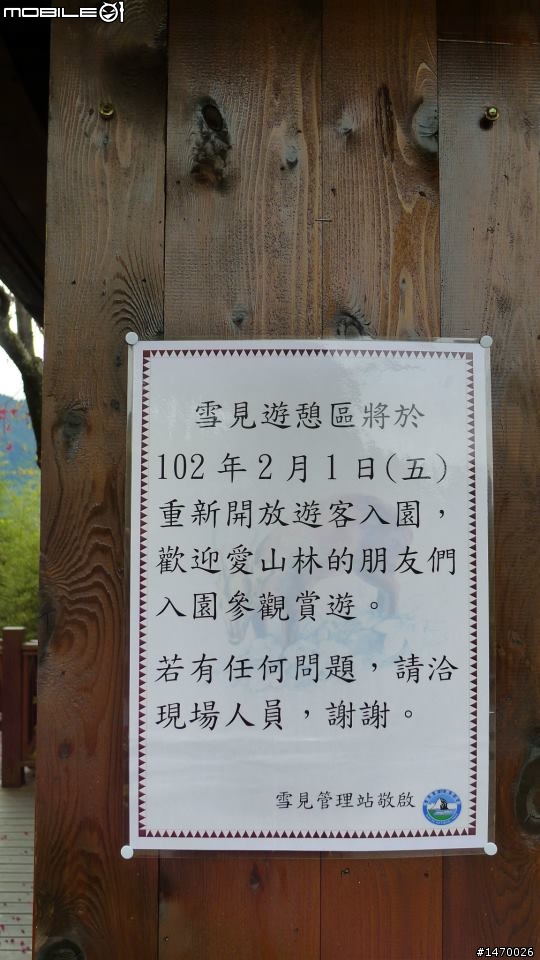 MOBILE01
雪見遊憩區將於
102年2月1日(五)
重新開放遊客入園，
歡迎愛山林的朋友們
入園參觀賞遊。
若有任何問題，請洽
現場人員，謝謝。
雪見管理站敬啟
#1470026